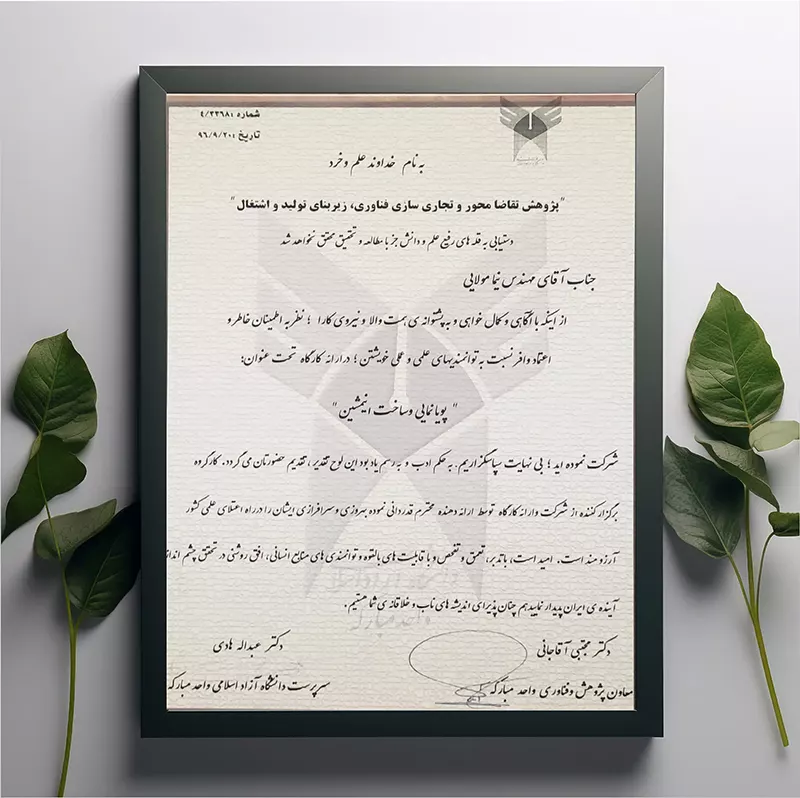 شماره ۴/۳۳۶۸۱
تاریخ ۹۶/۹/۲۰۱
به نام خداوند علم و خرد
"پژوهش تقاضا محور و تجاری سازی فناوری، زیربنای تولید و اشتغال"
دستیابی به قله های رفیع علم و دانش جز با مطالعه و تحقیق محقق نخواهد شد
جناب آقای مهندس نیما مولایی
از اینکه با آگاهی و کمال خواهی و به پشتوانه ی همت والا و نیروی کارا ؛ نظر به اطمینان خاطر و
اعتماد وافر نسبت به توانمندیهای علمی و عملی خویشتن ؛ در ارائه کارگاه تحت عنوان:
" پویانمایی و ساخت انیمشین "
شرکت نموده اید ؛ بی نهایت سپاسگزاریم. به حکم ادب و به رسم یادبود این لوح تقدیر ، تقدیم حضورتان می گردد. کارگروه
برگزار کننده از شرکت و ارائه کارگاه توسط ارائه دهنده محترم قدردانی نموده بهروزی و سرافرازی ایشان را در راه اعتلای علمی کشور
آرزومند است. امید است، با تدبر، تعمق و تفحص و با قابلیت های بالقوه و توانمندی های منابع انسانی، افق روشنی در تحقق چشم انداز
آینده ی ایران پدیدار نماییدهم چنان پذیرای اندیشه های ناب و خلاقانه ی شما هستیم.
دکتر مجتبی آقاجانی
معاون پژوهش و فناوری واحد مبارکه
دکتر عبداله هادی
سرپرست دانشگاه آزاد اسلامی واحد مبارکه